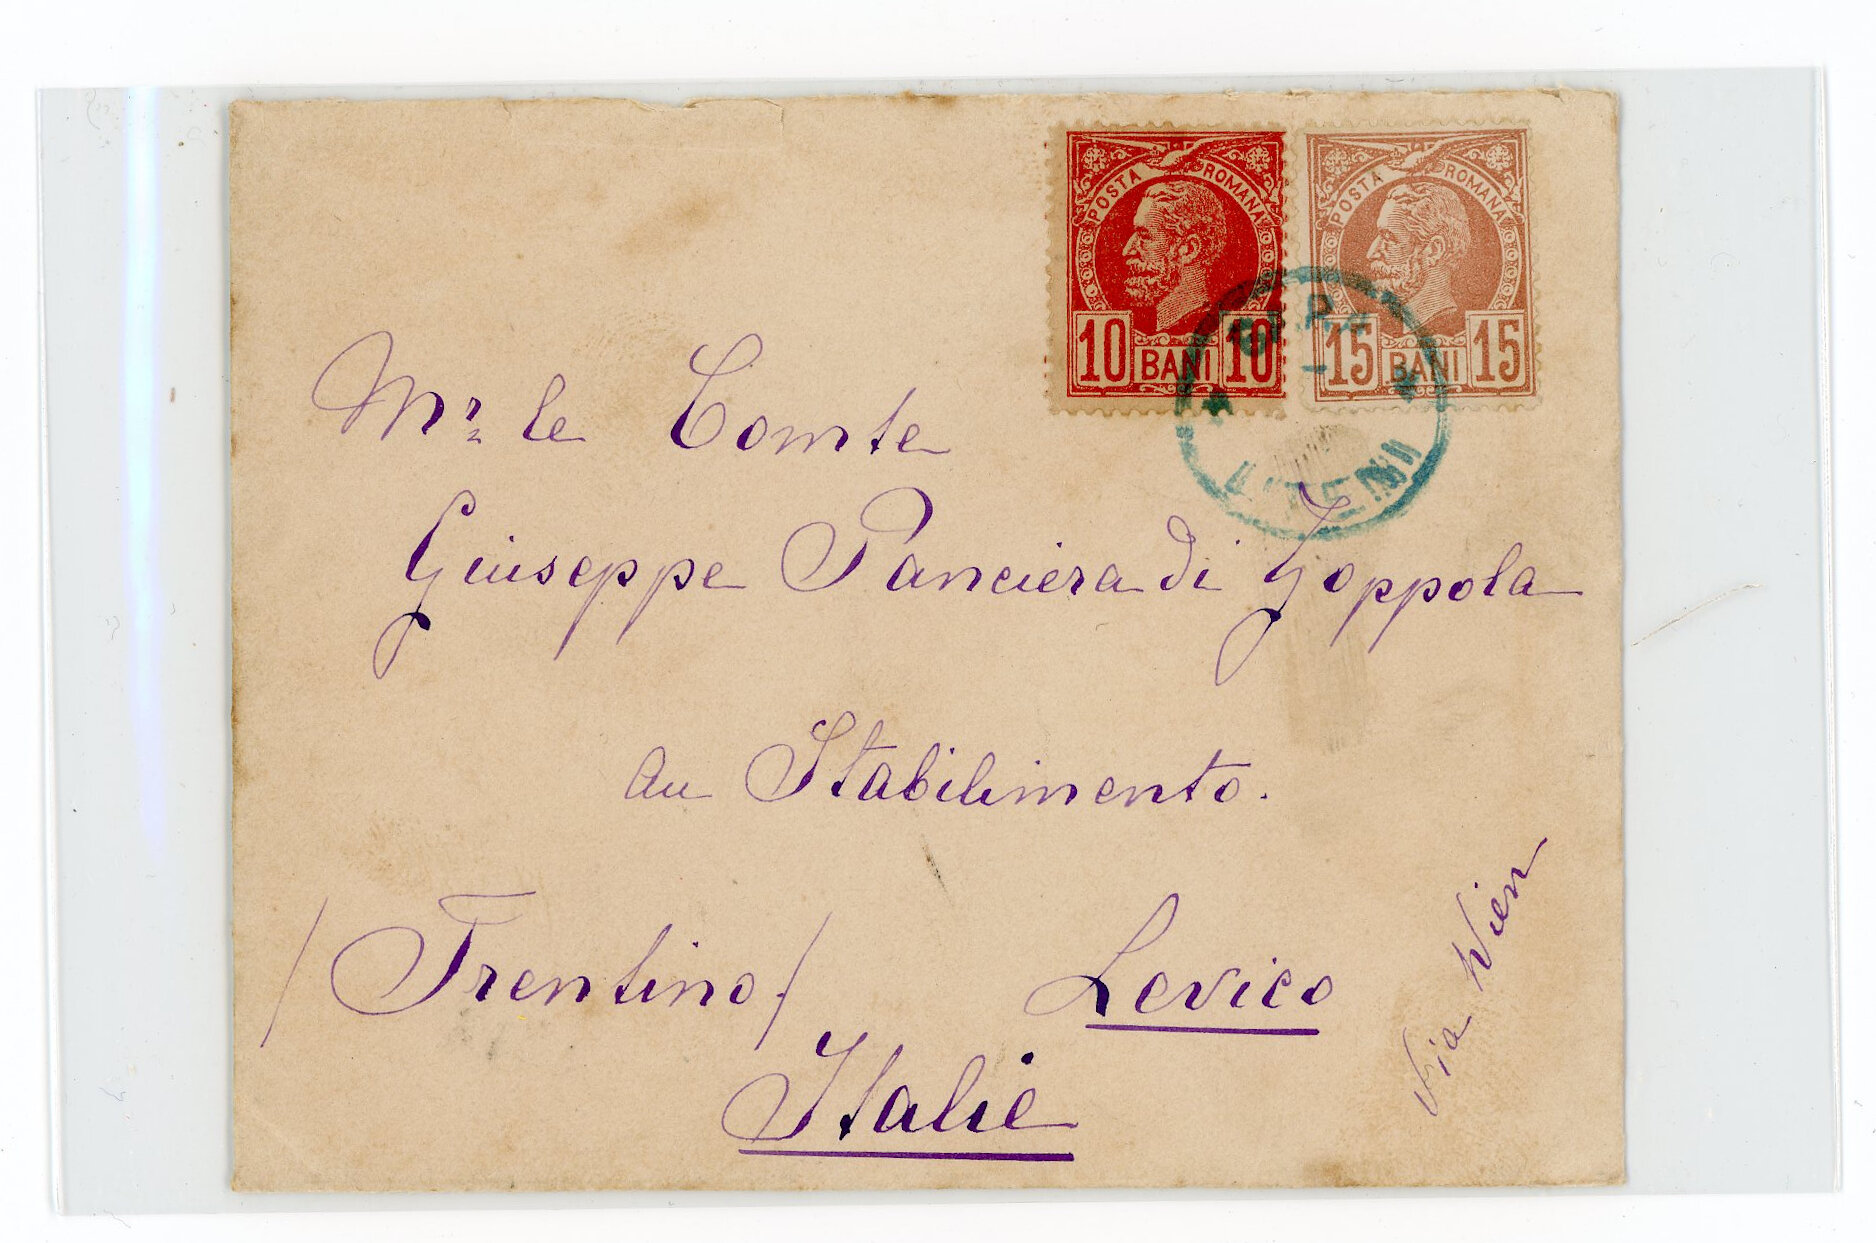 POSTA ROMANA
10 BANI 10
POSTA ROMANA
15 BANI 15
Mr. le Comte
Giuseppe Panciera di Zoppola
au Stabilimento.
/Trentino./ Levico
Italie
Via Wien